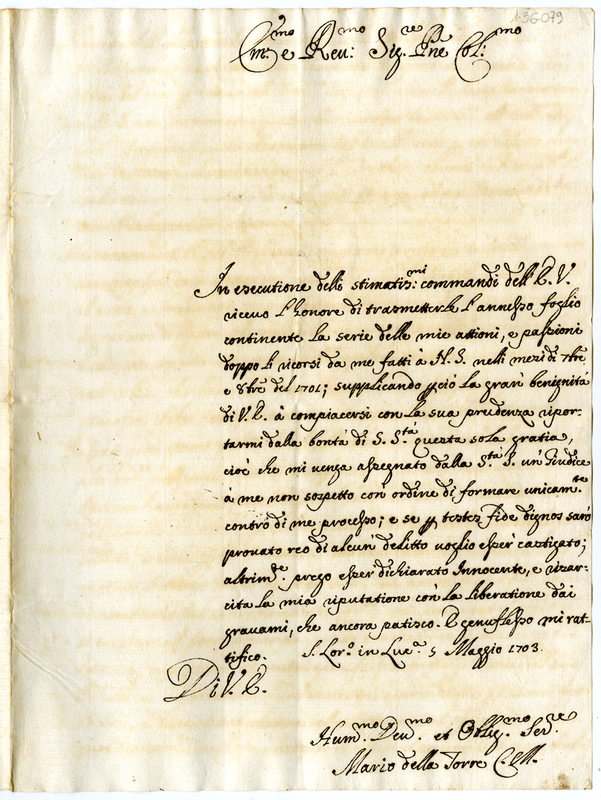 1-36-079
Em:mo e Reu:mo Sig:re Pne Col:mo
In esecutione delli stimatis:mi commandi dell'E. V.
riceuo l'honore di trasmetterle l'annesso foglio
continente la serie delle mie attioni, e passioni
doppo li ricorsi da me fatti à N. S. nelli mezi di 7bre
e 8bre del 1701; supplicando p ciò la gran benignità
di V. E. à compiacersi con la sua prudenza ripor-
tarmi dalla bontà di S. S.tà questa sola gratia,
cioè che mi uenga assegnato dalla S.tà S. un Giudice
à me non sospetto con ordine di formare unicam.te
contro di me processo; e se p testes fide dignos sarò
prouato reo di alcun delitto uoglio esser castigato;
altrim.te prego esser dichiarato Innocente, e risar-
cita la mia riputatione con la liberatione dai
grauami, che ancora patisco. E genuflesso mi rat-
tifico. S. Lor.o in Luc.a 5 Maggio 1703.
Di V. E.
Hum.mo Deu.mo et Oblig.mo Ser.re
Mario della Torre C. M.